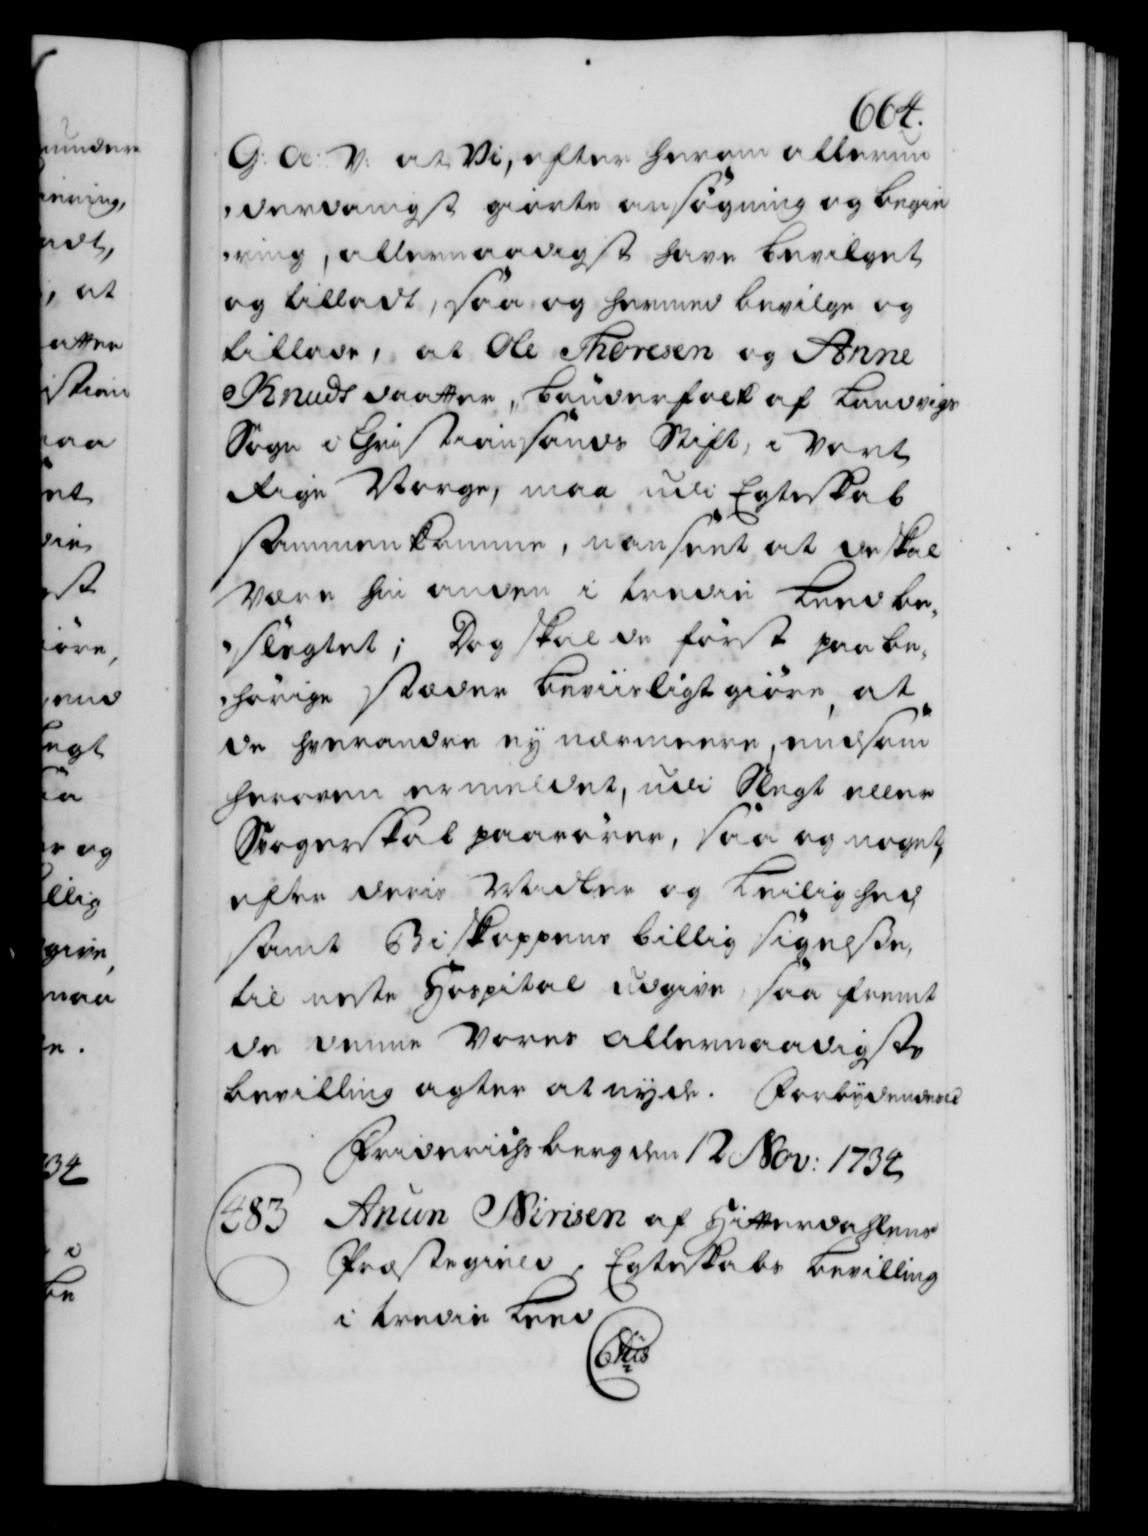 664.
G: A: V: at Vi, efter herom allerun
derdanigst giorte ansøgning og begie
ring, allernaadigst have bevilget
og tilladt, saa og hermed bevilge og
tillade, at Ole Thoresen og Anne
Knuds daatter, bønderfolk af Landvigs
Sogn i Christiansands Stift, i vort
Rige Norge, maa udi Egteskab
sammenkomme, uanseet at de skal
være hin anden i tredie Leed be-
slegtet; Dog skal de først paa be-
hørige stæder beviisligt giøre, at
de hverandre ey nærmeere, end som
heroven er meldet, udi Slegt eller
Svogerskab paarører, saa og noget,
efter deris Midler og Leilighed
samt Biskoppens billig sigelse,
til neste Hospital udgive, saa fremt
de denne Vores allernaadigste
bevilling agter at nyde. Forbydendes
Friderichsberg den 12 Nov: 1734
483 Anun Nirisen af Hitterdahlens
Præstegield, Egteskabs bevilling
i tredie Leed